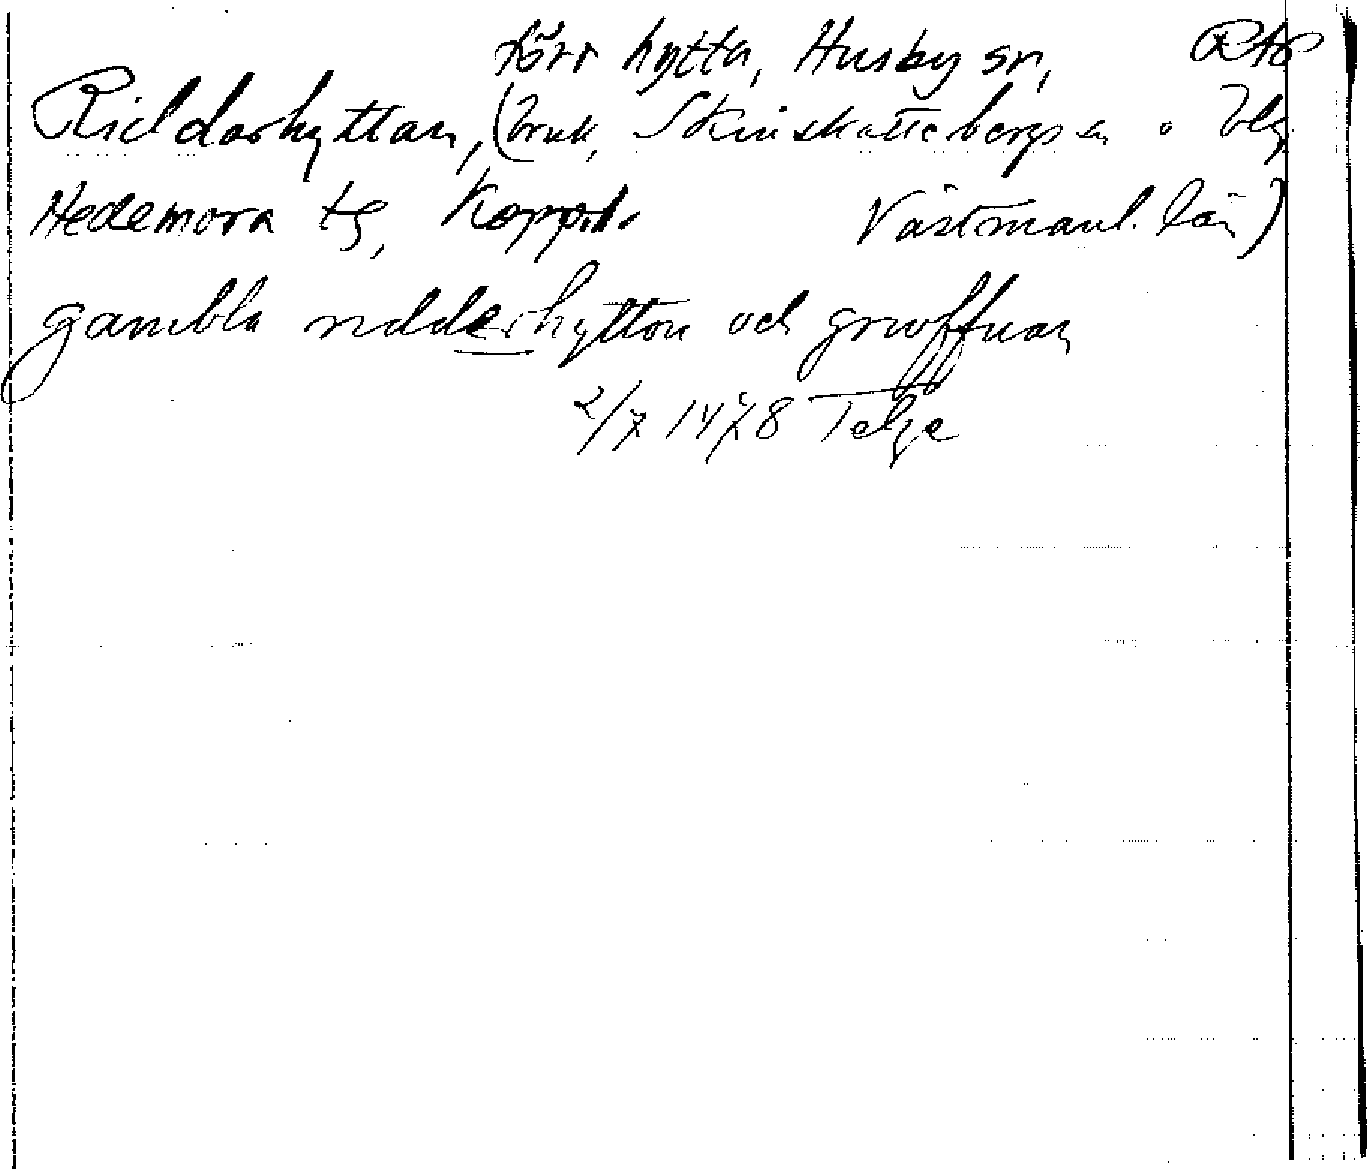 förr hytta, Husby sn, RAP
Riddarhyttan, (bruk, Skinskattebergs sn o
Hedemora tg, Kopp.l. Västmanl. län)
gambla ridderhytton och grwffuan
2/7 1478 Telge